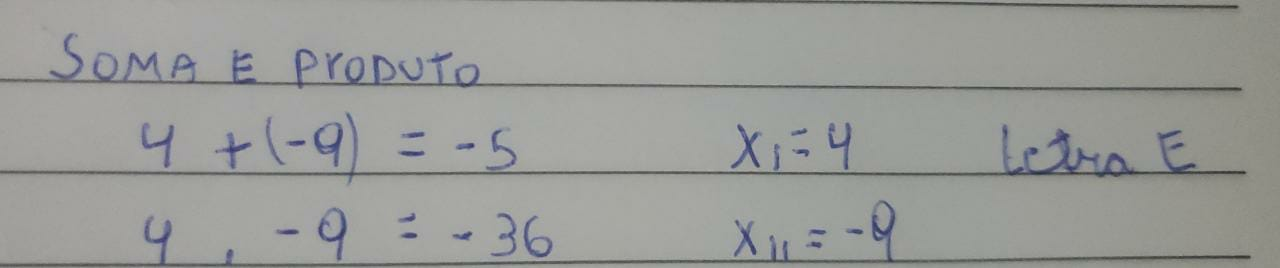 SOMA E PRODUTO
4 + (-9) = -5 X₁ = 4 Letra E
4 . -9 = -36 X₁₁ = -9